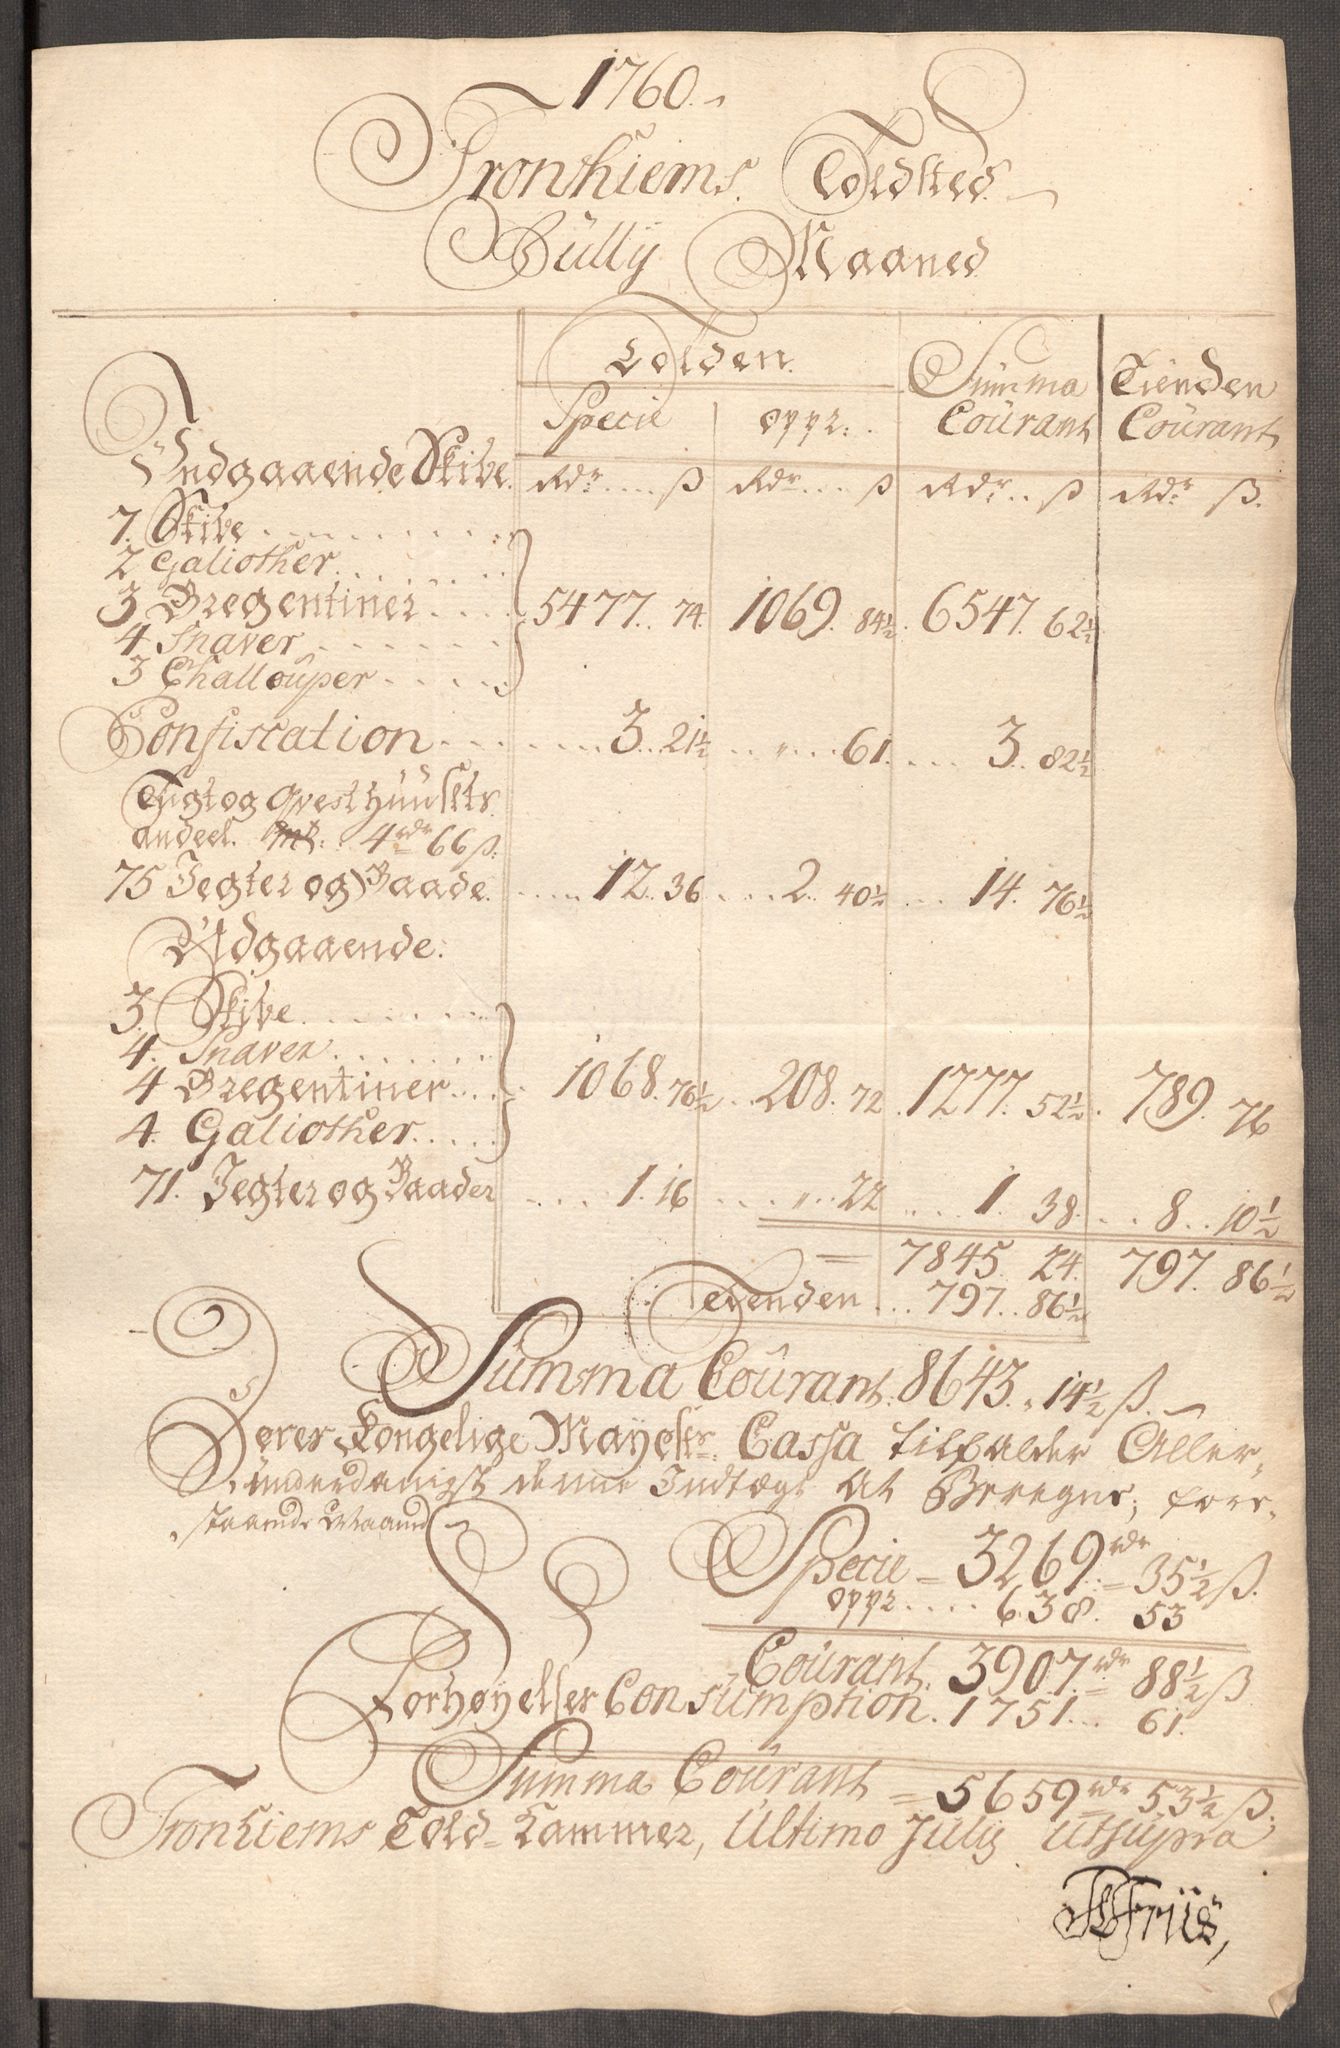 1760.
Tronhiems Toldsted
Jully Maaned
Tolden. Summa Tienden
Specie oppr: Courant Courant
Indgaaende Skibe. Rdr ß Rdr ß Rdr ß Rdr ß.
7. Skibe
2 Galiother
3 Bregentiner 5477. 74. 1069. 84½. 6547. 62½
4 Snaver
3 Challouper
Confiscation 3. 21½ " 61. 3. 82½
Tugt og Qvesthuusets
andeel. 4 rdr 66 ß.
75 Jegter og Baade 12. 36 2. 40½ 14. 76½
Udgaaende:
3. Skibe
4. Snaver
4 Bregentiner 1068. 76½ 208. 72 1277. 52½. 789. 76
4. Galiother
71. Jegter og Baader 1. 16 " 22 1. 38. 8. 10½
= 7845. 24. 797. 86½
Tienden 797. 86½
Summa Courant. 8643. 14½ ß.
Deres Kongelige Mayests. Cassa tilfalder Aller,,
underdanigst denne Indtægt at Beregne, fore,,
staaende Maaned
Specie = 3269 rdr = 35½ ß.
oppr 638. 53
Courant. 3907 rdr 88½ ß
Forhøyelses Consumption. 1751. 61.
Summa Courant = 5659 rdr 53½ ß.
Tronhiems Told-Kammer, Ultimo July Utsupra
Friis,